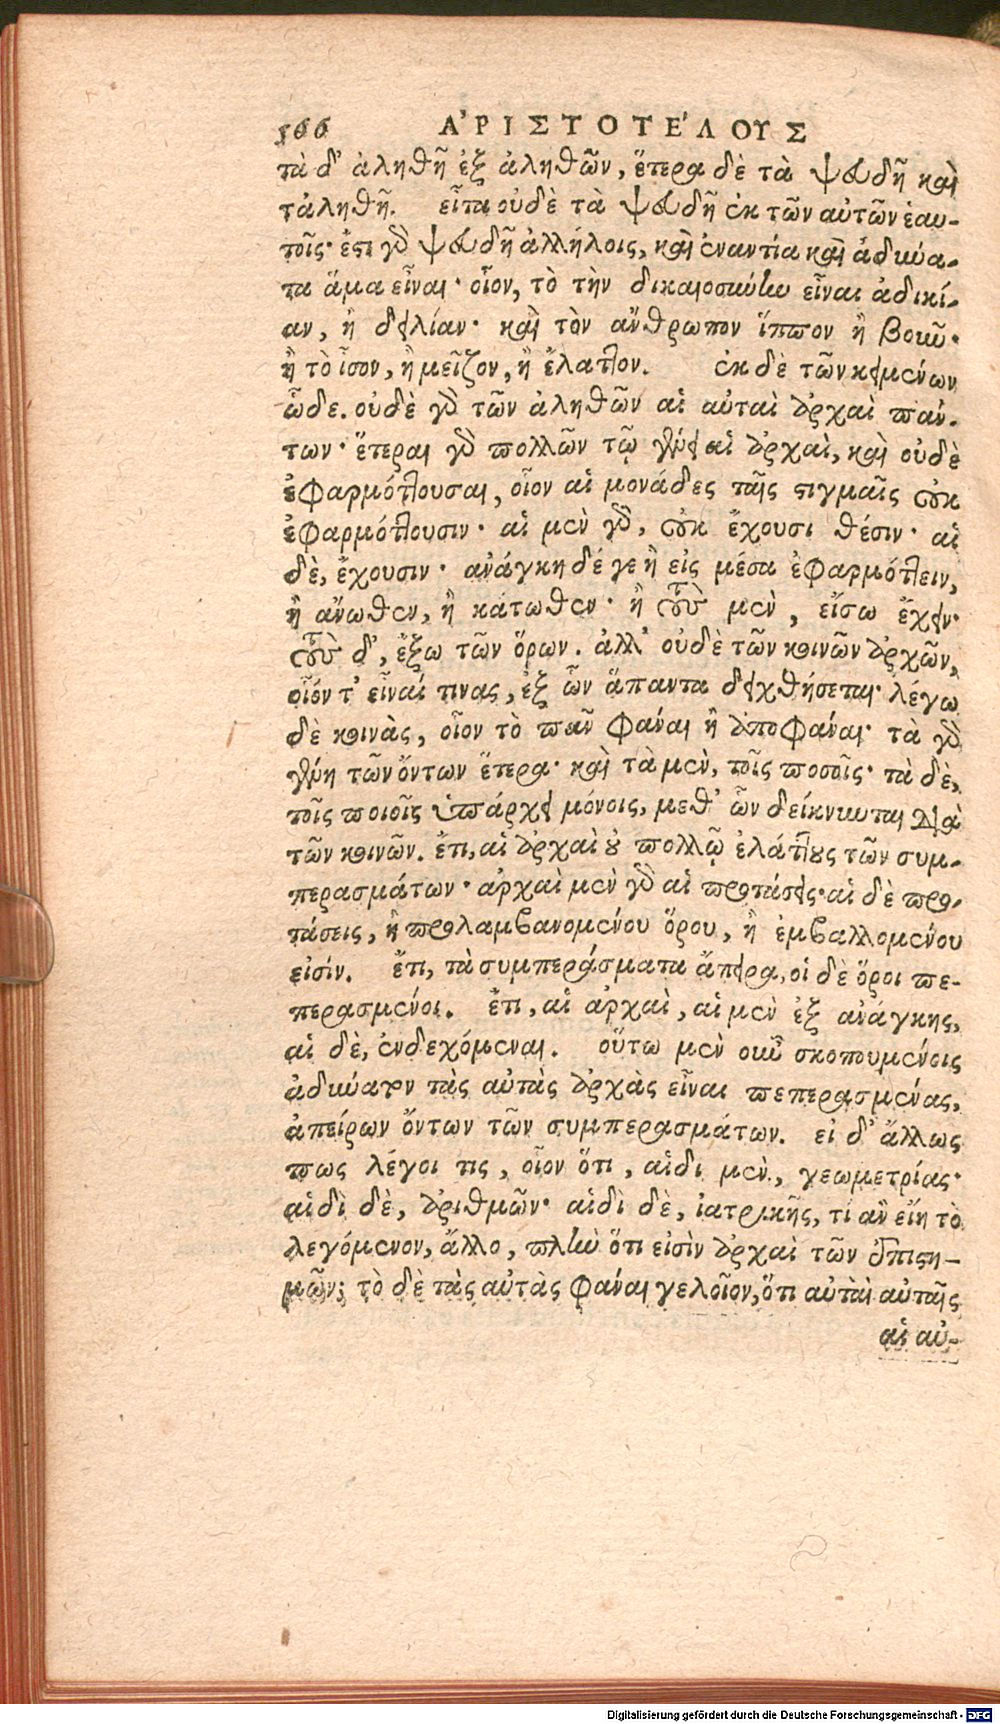 566 ἈΡΙΣΤΟΤΈΛΟΥΣ
τὰ δ' ἀληθῆ ἐξ ἀληθῶν, ἕτερα δὲ τὰ ψευδῆ καὶ
τἀληθῆ. εἶτα οὐδὲ τὰ ψευδῆ ἐκ τῶν αὐτῶν ἑαυ-
τοῖς· ἔστι γὰρ ψευδῆ ἀλλήλοις, καὶ ἐναντία καὶ ἀδύνα-
τα ἅμα εἶναι· οἷον, τὸ τὴν δικαιοσύνην εἶναι ἀδικί-
αν, ἢ δειλίαν· καὶ τὸν ἄνθρωπον ἵππον ἢ βοῦν·
ἢ τὸ ἶσον, ἢ μεῖζον, ἢ ἔλαττον. ἐκ δὲ τῶν κειμένων
ὧδε. οὐδὲ γὰρ τῶν ἀληθῶν αἱ αὐταὶ ἀρχαὶ πάν-
των· ἕτεραι γὰρ πολλῶν τῷ γένει αἱ ἀρχαὶ, καὶ οὐδὲ
ἐφαρμόττουσαι, οἷον αἱ μονάδες ταῖς στιγμαῖς οὐκ
ἐφαρμόττουσιν· αἱ μὲν γὰρ, οὐκ ἔχουσι θέσιν· αἱ
δὲ, ἔχουσιν· ἀνάγκη δέ γε ἢ εἰς μέσα ἐφαρμόττειν,
ἢ ἄνωθεν, ἢ κάτωθεν· ἢ τοὺς μὲν, εἴσω ἔχειν·
τοὺς δ', ἔξω τῶν ὅρων. ἀλλ' οὐδὲ τῶν κοινῶν ἀρχῶν,
οἷόν τ' εἶναί τινας, ἐξ ὧν ἅπαντα δειχθήσεται· λέγω
δὲ κοινὰς, οἷον τὸ πᾶν φάναι ἢ ἀποφάναι· τὰ γὰρ
γένη τῶν ὄντων ἕτερα· καὶ τὰ μὲν, τοῖς ποσοῖς· τὰ δὲ,
τοῖς ποιοῖς ὑπάρχει μόνοις, μεθ' ὧν δείκνυται διὰ
τῶν κοινῶν. ἔτι, αἱ ἀρχαὶ οὐ πολλῷ ἐλάττους τῶν συμ-
περασμάτων· ἀρχαὶ μὲν γὰρ αἱ προτάσεις· αἱ δὲ προ-
τάσεις, ἢ προλαμβανομένου ὅρου, ἢ ἐμβαλλομένου
εἰσίν. ἔτι, τὰ συμπεράσματα ἄπειρα, οἱ δὲ ὅροι πε-
περασμένοι. ἔτι, αἱ ἀρχαὶ, αἱ μὲν ἐξ ἀνάγκης,
αἱ δὲ, ἐνδεχόμεναι. οὕτω μὲν οὖν σκοπουμένοις
ἀδύνατον τὰς αὐτὰς ἀρχὰς εἶναι πεπερασμένας,
ἀπείρων ὄντων τῶν συμπερασμάτων. εἰ δ' ἄλλως
πως λέγοι τις, οἷον ὅτι, αἱδὶ μὲν, γεωμετρίας·
αἱδὶ δὲ, ἀριθμῶν· αἱδὶ δὲ, ἰατρικῆς, τί ἂν εἴη τὸ
λεγόμενον, ἄλλο, πλὴν ὅτι εἰσὶν ἀρχαὶ τῶν ἐπιστη-
μῶν; τὸ δὲ τὰς αὐτὰς φάναι γελοῖον, ὅτι αὐταὶ αὐταῖς
αἱ αὐ-
Digitalisierung gefördert durch die Deutsche Forschungsgemeinschaft - DFG